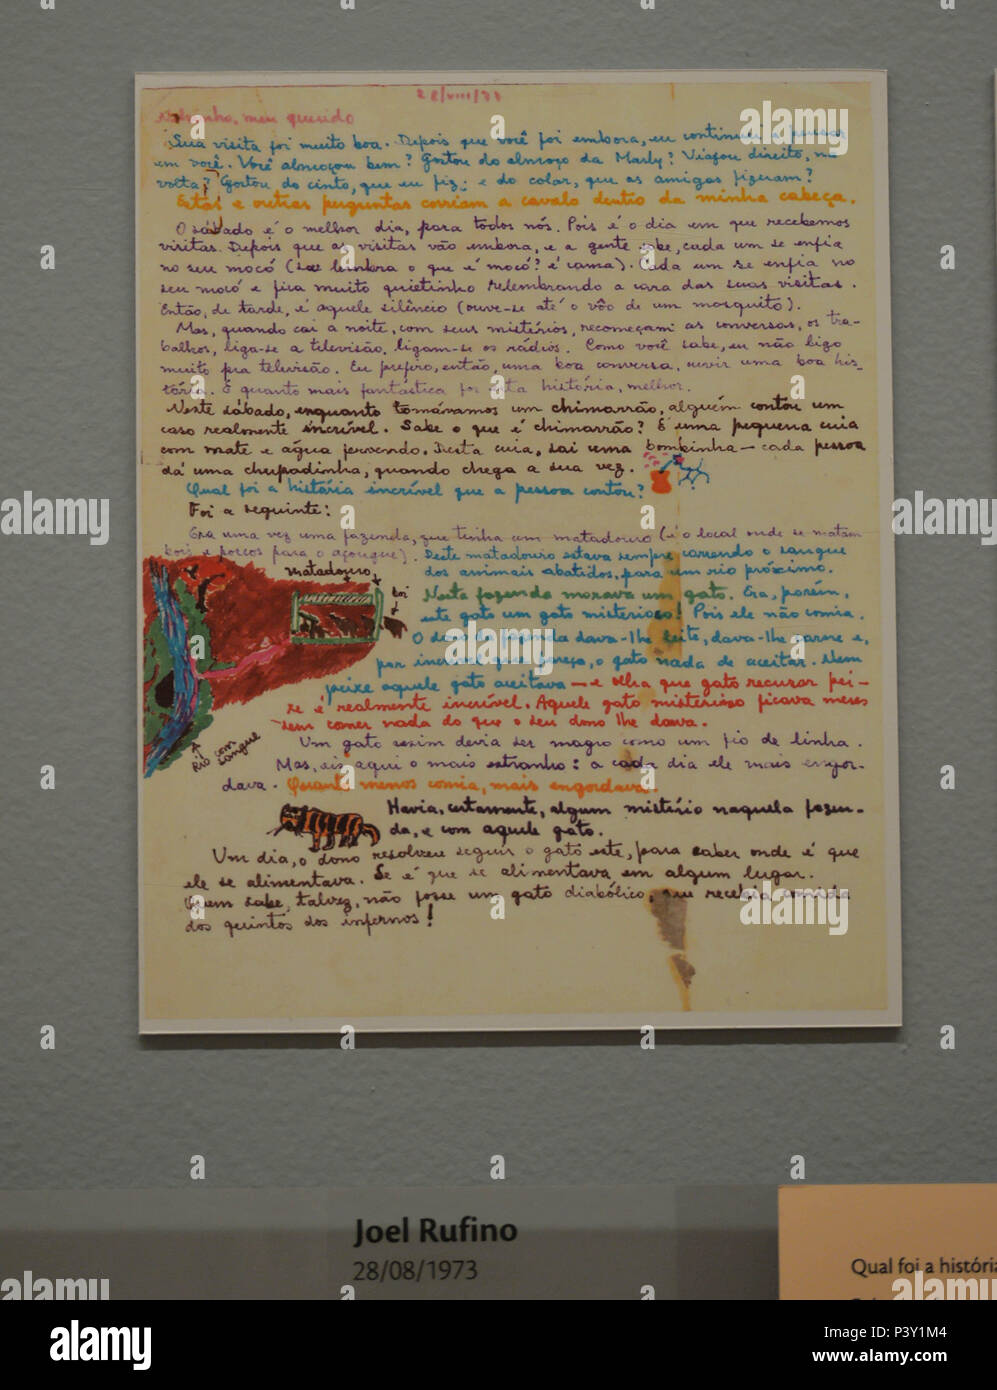 28/VIII/73
Nelsinho, meu querido
Sua visita foi muito boa. Depois que você foi embora, eu continuei a pensar
em você. Você almoçou bem? Gostou do almoço da Marly? Viajou direito, na
volta? Gostou do cinto, que eu fiz; e do colar, que as amigas fizeram?
Estas e outras perguntas corriam a cavalo dentro da minha cabeça.
O sábado é o melhor dia, para todos nós. Pois é o dia em que recebemos
visitas. Depois que as visitas vão embora, e a gente sobe, cada um se enfia
no seu mocó (se lembra o que é mocó? é cama). Cada um se enfia no
seu mocó e fica muito quietinho relembrando a cara das suas visitas.
Então, de tarde, é aquele silêncio (ouve-se até o vôo de um mosquito).
Mas, quando cai a noite, com seus mistérios, recomeçam as conversas, os tra-
balhos, liga-se a televisão, ligam-se os rádios. Como você sabe, eu não ligo
muito pra televisão. Eu prefiro, então, uma boa conversa, ouvir uma boa his-
tória. E quanto mais fantástica for esta história, melhor.
Neste sábado, enquanto tomávamos um chimarrão, alguém contou um
caso realmente incrível. Sabe o que é chimarrão? É uma pequena cuia
com mate e água fervendo. Desta cuia, sai uma bombinha — cada pessoa
dá uma chupadinha, quando chega a sua vez.
Qual foi a história incrível que a pessoa contou?
Foi a seguinte:
Era uma vez uma fazenda, que tinha um matadouro (é o local onde se matam
bois e porcos para o açougue). Deste matadouro estava sempre correndo o sangue
dos animais abatidos, para um rio próximo.
matadouro
boi
Nesta fazenda morava um gato. Era, porém,
este gato um gato misterioso! Pois ele não comia.
O dono da fazenda dava-lhe leite, dava-lhe carne e,
por incrível que pareça, o gato nada de aceitar. Nem
peixe aquele gato aceitava — e olha que gato recusar pei-
xe é realmente incrível. Aquele gato misterioso ficava meses
sem comer nada do que o seu dono lhe dava.
Rio com
sangue
Um gato assim devia ser magro como um fio de linha.
Mas, eis aqui o mais estranho: a cada dia ele mais engor-
dava. Quanto menos comia, mais engordava.
Havia, certamente, algum mistério naquela fazen-
da, e com aquele gato.
Um dia, o dono resolveu seguir o gato este, para saber onde é que
ele se alimentava. Se é que se alimentava em algum lugar.
Quem sabe, talvez, não fosse um gato diabólico, que recebia comida
dos quintos dos infernos!
Joel Rufino
28/08/1973
Qual foi a história
alamy
Image ID: P3Y1M4
www.alamy.com